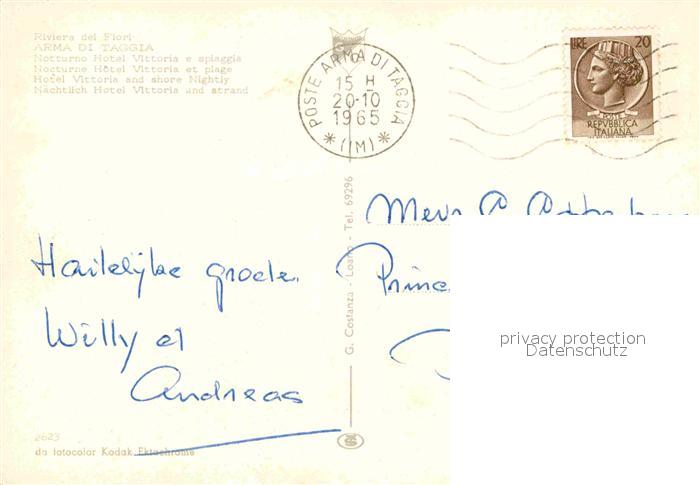 Riviera dei Fiori
ARMA DI TAGGIA
Notturno Hotel Vittoria e spiaggia
Nocturne Hôtel Vittoria et plage
Hotel Vittoria and shore Nightly
Nächtlich Hotel Vittoria und strand
POSTE ARMA DI TAGGIA
15 H
20-10
1965
* (IM) *
LIRE 20
POSTE
REPVBBLICA
ITALIANA
G. Costanza - Loano - Tel. 69296
Mevr
Hartelijke groeten
Willy et
Andreas
privacy protection
Datenschutz
2623
da fotocolor Kodak Ektachrome